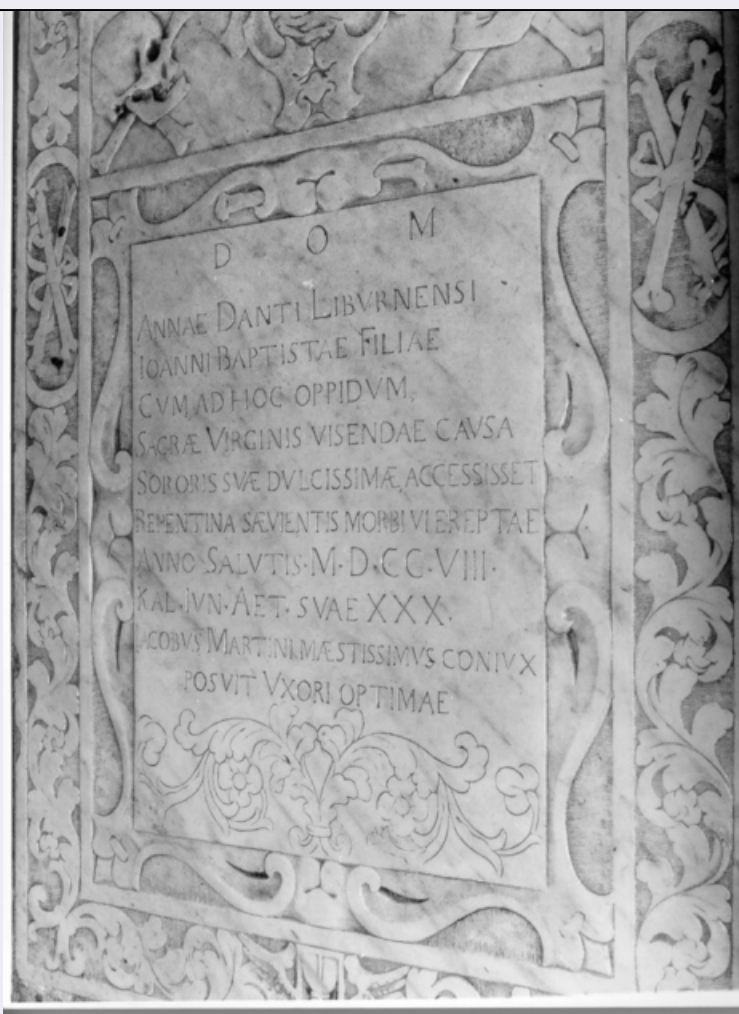 D O M
ANNAE DANTI LIBVRNENSI
IOANNI BAPTISTAE FILIAE
CVM AD HOC OPPIDVM,
SAGRÆ VIRGINIS VISENDAE CAVSA
SORORIS SVÆ DVLCISSIMÆ, ACCESSISSET
REPENTINA SÆVIENTIS MORBI VI EREPTAE
ANNO SALVTIS · M · D · CC · VIII ·
KAL · IVN · AET · SVAE XXX.
IACOBVS MARTINI MÆSTISSIMVS CONIVX
POSVIT VXORI OPTIMAE